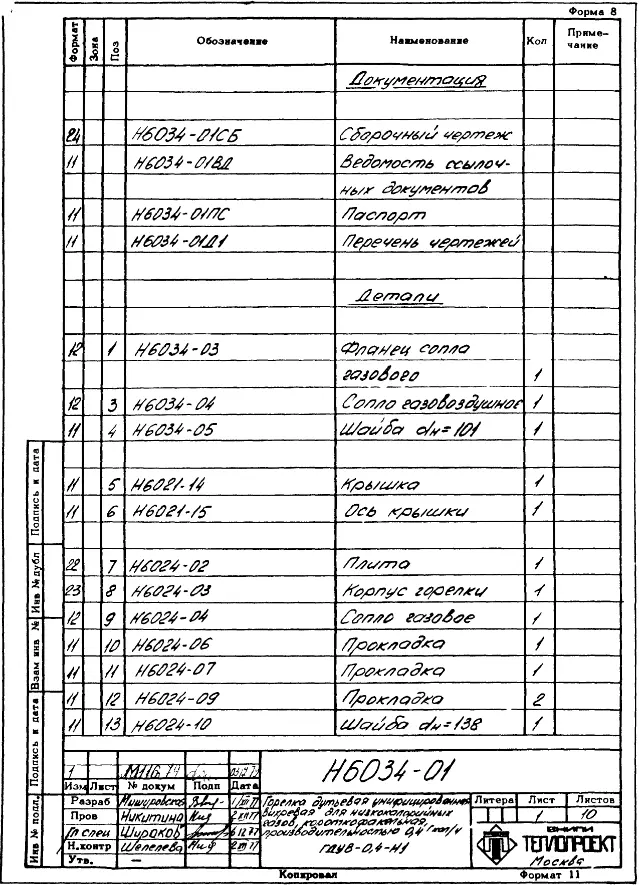 Форма 8
Формат Зона Поз Обозначение Наименование Кол Приме-
чание
Документация
24 Н6034-01СБ Сборочный чертеж
11 Н6034-01ВД Ведомость ссылоч-
ных документов
11 Н6034-01ПС Паспорт
11 Н6034-01Д1 Перечень чертежей
Детали
12 1 Н6034-03 Фланец сопла
газового 1
12 3 Н6034-04 Сопло газовоздушное 1
11 4 Н6034-05 Шайба dн=101 1
11 5 Н6021-14 Крышка 1
11 6 Н6021-15 Ось крышки 1
22 7 Н6024-02 Плита 1
23 8 Н6024-03 Корпус горелки 1
12 9 Н6024-04 Сопло газовое 1
11 10 Н6024-06 Прокладка 1
11 11 Н6024-07 Прокладка 1
11 12 Н6024-09 Прокладка 2
11 13 Н6024-10 Шайба dн=138 1
Подпись и дата
Инв № дубл
Взам инв №
Подпись и дата
Инв № подл.
1 М116.74
Изм Лист № докум Подп Дата
Н6034-01
Разраб
Пров Никитина
Гл спец Широков
Н.контр Шепелева
Утв.
Горелка дутьевая унифицированная
вихревая для низкокалорийных
газов, короткофакельная,
производительностью 0,4 Гкал/ч
ГДУВ-0,4-Н1
Литера Лист Листов
1 10
ВНИПИ
ТЕПЛОПРОЕКТ
Москва
Копировал Формат 11